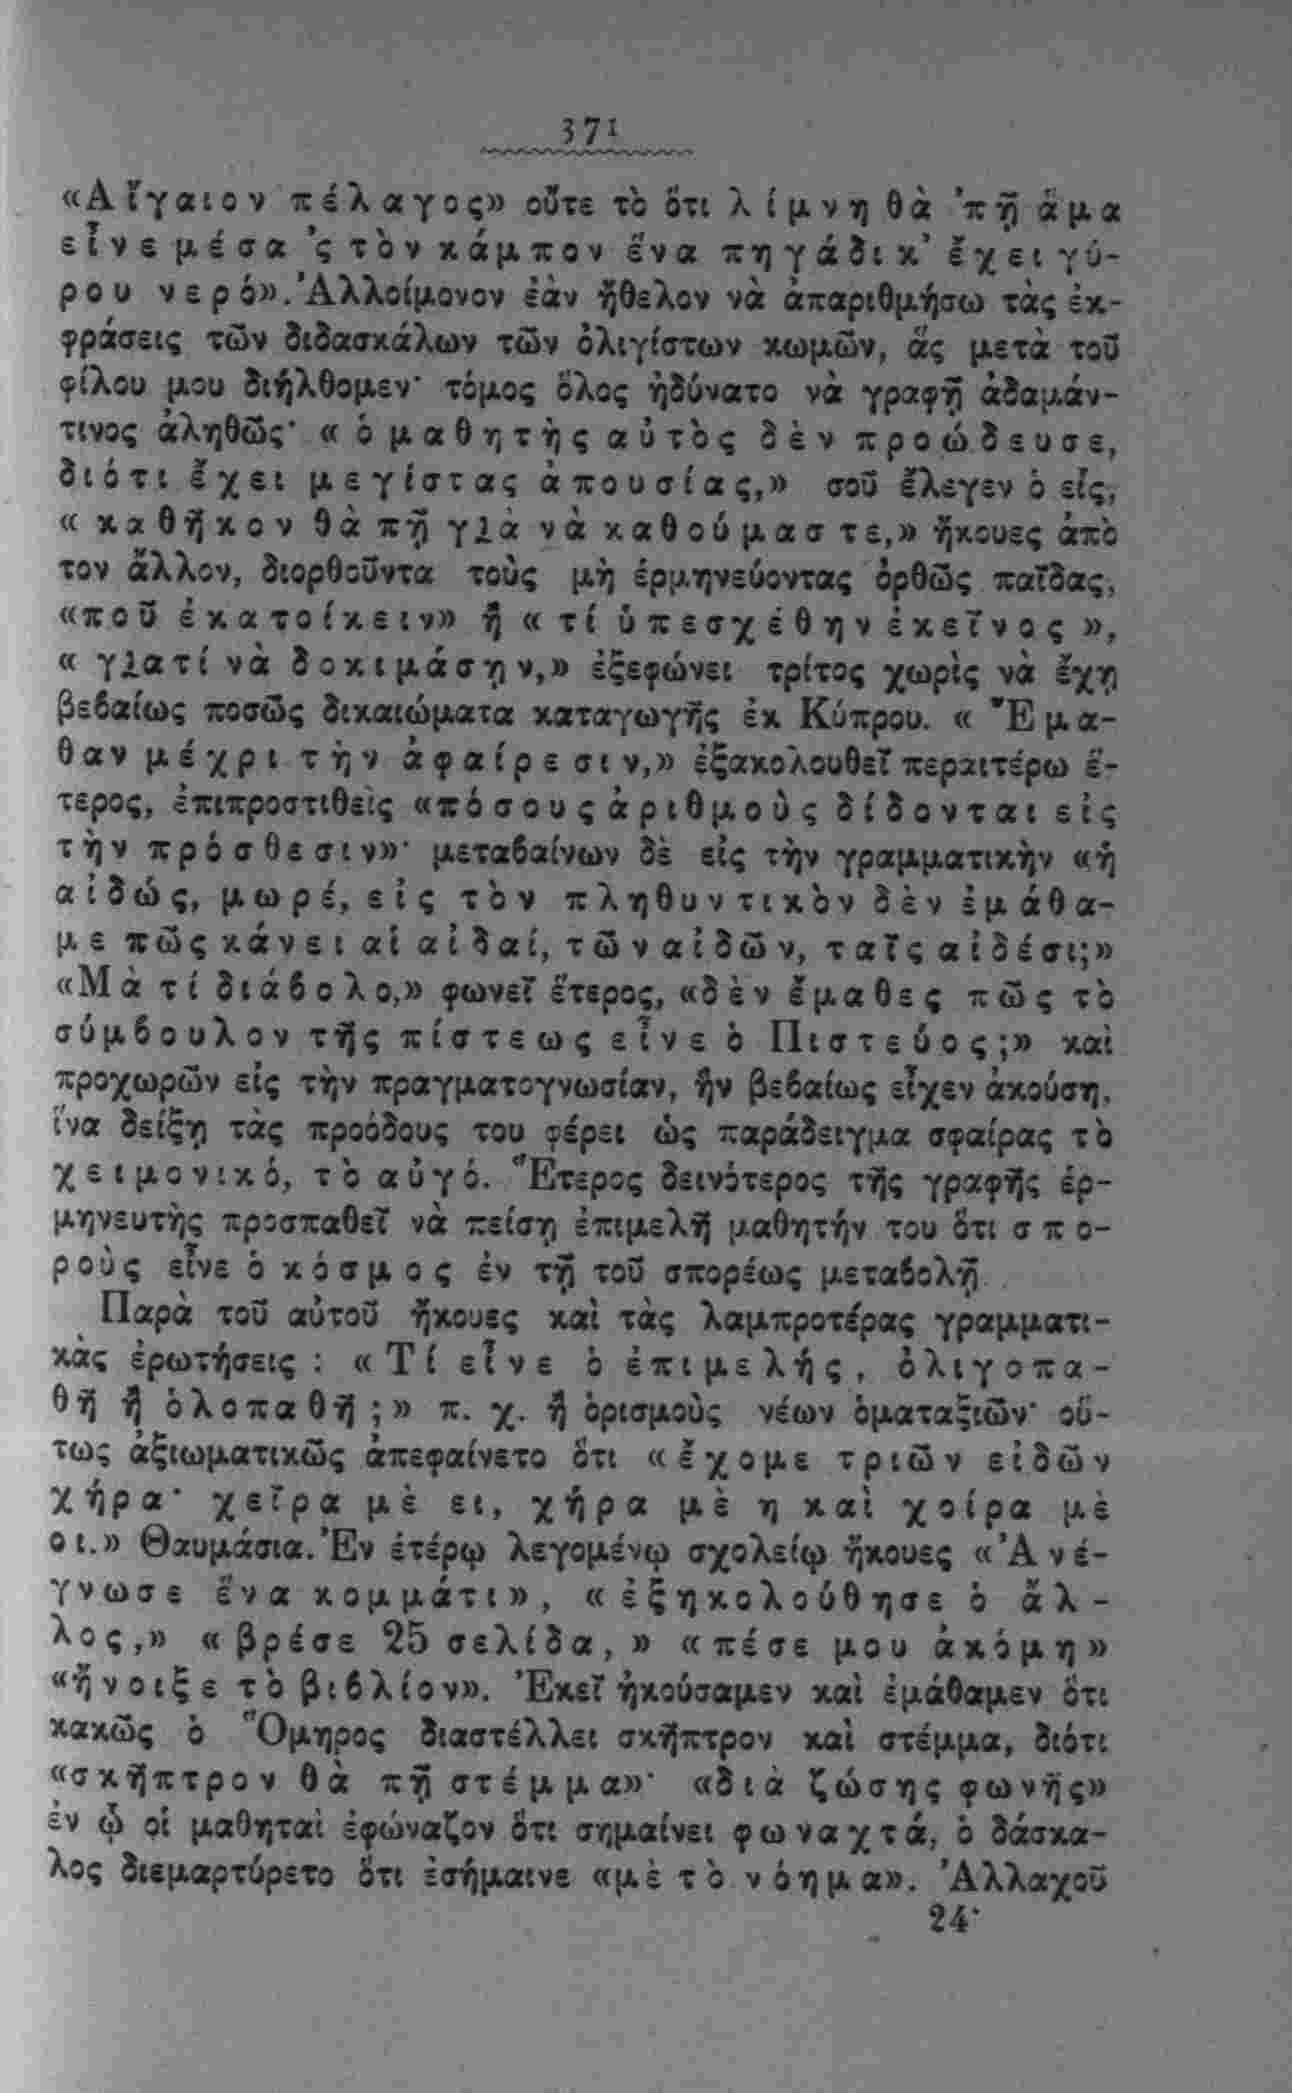 371
«Αἴγαιον πέλαγος» οὔτε τὸ ὅτι λίμνη θὰ ’πῇ ἅμα
εἶνε μέσα ’ς τὸν κάμπον ἕνα πηγάδι κ’ ἔχει γύ-
ρου νερό». Ἀλλοίμονον ἐὰν ἤθελον νὰ ἀπαριθμήσω τὰς ἐκ-
φράσεις τῶν διδασκάλων τῶν ὀλιγίστων κωμῶν, ἃς μετὰ τοῦ
φίλου μου διήλθομεν· τόμος ὅλος ἠδύνατο νὰ γραφῇ ἀδαμάν-
τινος ἀληθῶς· «ὁ μαθητὴς αὐτὸς δὲν προώδευσε,
διότι ἔχει μεγίστας ἀπουσίας,» σοῦ ἔλεγεν ὁ εἷς,
«καθῆκον θὰ πῇ γιὰ νὰ καθούμαστε,» ἤκουες ἀπὸ
τον ἄλλον, διορθοῦντα τοὺς μὴ ἑρμηνεύοντας ὀρθῶς παῖδας,
«ποῦ ἐκατοίκειν» ἢ «τί ὑπεσχέθην ἐκεῖνος»,
«γιατί νὰ δοκιμάσῃν,» ἐξεφώνει τρίτος χωρὶς νὰ ἔχῃ
βεβαίως ποσῶς δικαιώματα καταγωγῆς ἐκ Κύπρου. «Ἔμα-
θαν μέχρι τὴν ἀφαίρεσιν,» ἐξακολουθεῖ περαιτέρω ἕ-
τερος, ἐπιπροστιθεὶς «πόσους ἀριθμοὺς δίδονται εἰς
τὴν πρόσθεσιν»· μεταβαίνων δὲ εἰς τὴν γραμματικὴν «ἡ
αἰδώς, μωρέ, εἰς τὸν πληθυντικὸν δὲν ἐμάθα-
με πῶς κάνει αἱ αἰδαί, τῶν αἰδῶν, ταῖς αἰδέσι;»
«Μὰ τί διάβολο,» φωνεῖ ἕτερος, «δὲν ἔμαθες πῶς τὸ
σύμβουλον τῆς πίστεως εἶνε ὁ Πιστεύος;» καὶ
προχωρῶν εἰς τὴν πραγματογνωσίαν, ἣν βεβαίως εἶχεν ἀκούσῃ,
ἵνα δείξῃ τὰς προόδους του φέρει ὡς παράδειγμα σφαίρας τὸ
χειμονικό, τὸ αὐγό. Ἕτερος δεινότερος τῆς γραφῆς ἑρ-
μηνευτὴς προσπαθεῖ νὰ πείσῃ ἐπιμελῆ μαθητήν του ὅτι σπο-
ροὺς εἶνε ὁ κόσμος ἐν τῇ τοῦ σπορέως μεταβολῇ.
Παρὰ τοῦ αὐτοῦ ἤκουες καὶ τὰς λαμπροτέρας γραμματι-
κὰς ἐρωτήσεις : «Τί εἶνε ὁ ἐπιμελής, ὀλιγοπα-
θῆ ἢ ὁλοπαθῆ;» π. χ. ἢ ὁρισμοὺς νέων ὁματαξιῶν· οὕ-
τως ἀξιωματικῶς ἀπεφαίνετο ὅτι «ἔχομε τριῶν εἰδῶν
χήρα· χεῖρα μὲ ει, χήρα μὲ η καὶ χοίρα μὲ
οι.» Θαυμάσια. Ἐν ἑτέρῳ λεγομένῳ σχολείῳ ἤκουες «Ἀνέ-
γνωσε ἕνα κομμάτι», «ἐξηκολούθησε ὁ ἄλ-
λος,» «βρέσε 25 σελίδα,» «πέσε μου ἀκόμη»
«ἤνοιξε τὸ βιβλίον». Ἐκεῖ ἠκούσαμεν καὶ ἐμάθαμεν ὅτι
κακῶς ὁ Ὅμηρος διαστέλλει σκῆπτρον καὶ στέμμα, διότι
«σκῆπτρον θὰ πῇ στέμμα»· «διὰ ζώσης φωνῆς»
ἐν ᾧ οἱ μαθηταὶ ἐφώναζον ὅτι σημαίνει φωναχτά, ὁ δάσκα-
λος διεμαρτύρετο ὅτι ἐσήμαινε «μὲ τὸ νόημα». Ἀλλαχοῦ
24·